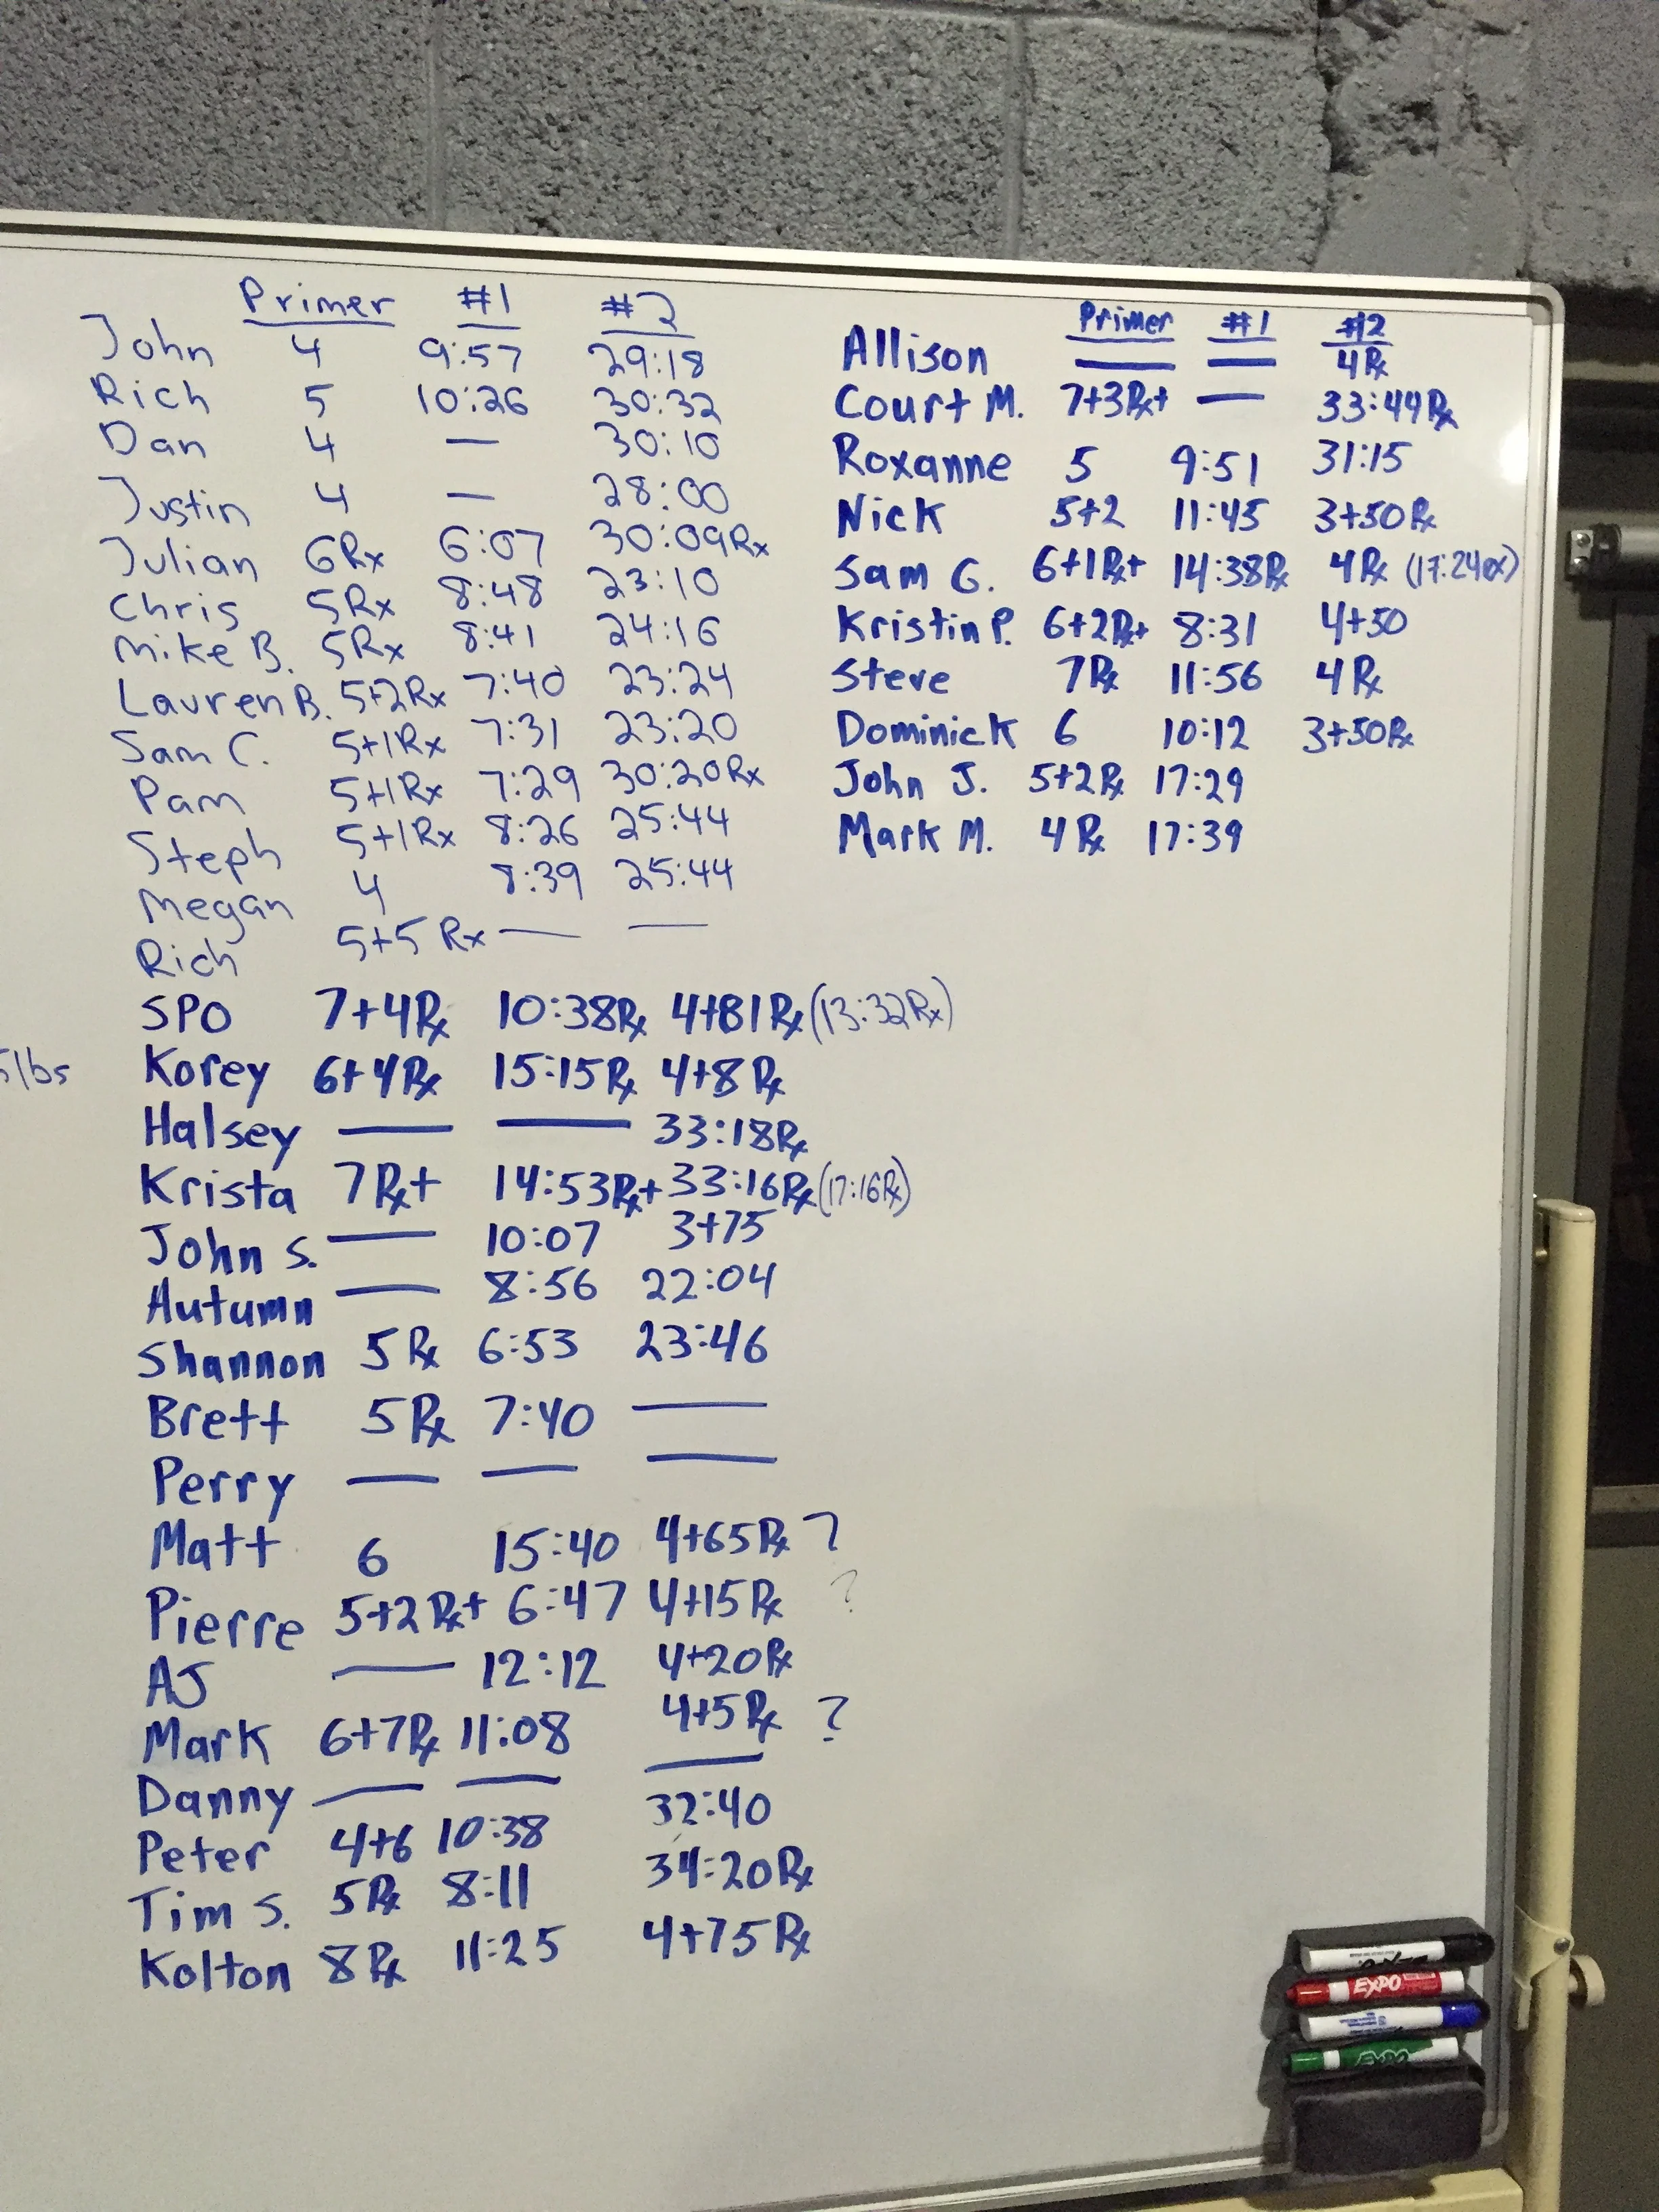 Primer #1 #2
John 4 9:57 29:18
Rich 5 10:26 30:32
Dan 4 — 30:10
Justin 4 — 28:00
Julian 6Rx 6:07 30:09Rx
Chris 5Rx 8:48 23:10
Mike B. 5Rx 8:41 24:16
Lauren B. 5+2Rx 7:40 23:24
Sam C. 5+1Rx 7:31 23:20
Pam 5+1Rx 7:29 30:20Rx
Steph 5+1Rx 8:26 25:44
Megan 4 8:39 25:44
Rich 5+5Rx — —
SPO 7+4Rx 10:38Rx 4+81Rx (13:32Rx)
5lbs
Korey 6+4Rx 15:15Rx 4+8Rx
Halsey — — 33:18Rx
Krista 7Rx+ 14:53Rx+ 33:16Rx (17:16Rx)
John S. — 10:07 3+75
Autumn — 8:56 22:04
Shannon 5Rx 6:53 23:46
Brett 5Rx 7:40 —
Perry — — —
Matt 6 15:40 4+65Rx ?
Pierre 5+2Rx+ 6:47 4+15Rx ?
AJ — 12:12 4+20Rx
Mark 6+7Rx 11:08 4+5Rx ?
Danny — — —
Peter 4+6 10:38 32:40
Tim S. 5Rx 8:11 34:20Rx
Kolton 8Rx 11:25 4+75Rx
Primer #1 #2
Allison — — 4Rx
Court M. 7+3Rx+ — 33:44Rx
Roxanne 5 9:51 31:15
Nick 5+2 11:45 3+50Rx
Sam G. 6+1Rx+ 14:38Rx 4Rx
Kristin P. 6+2Rx+ 8:31 4+50
Steve 7Rx 11:56 4Rx
Dominick 6 10:12 3+50Rx
John J. 5+2Rx 17:29
Mark M. 4Rx 17:39
EXPO
EXPO